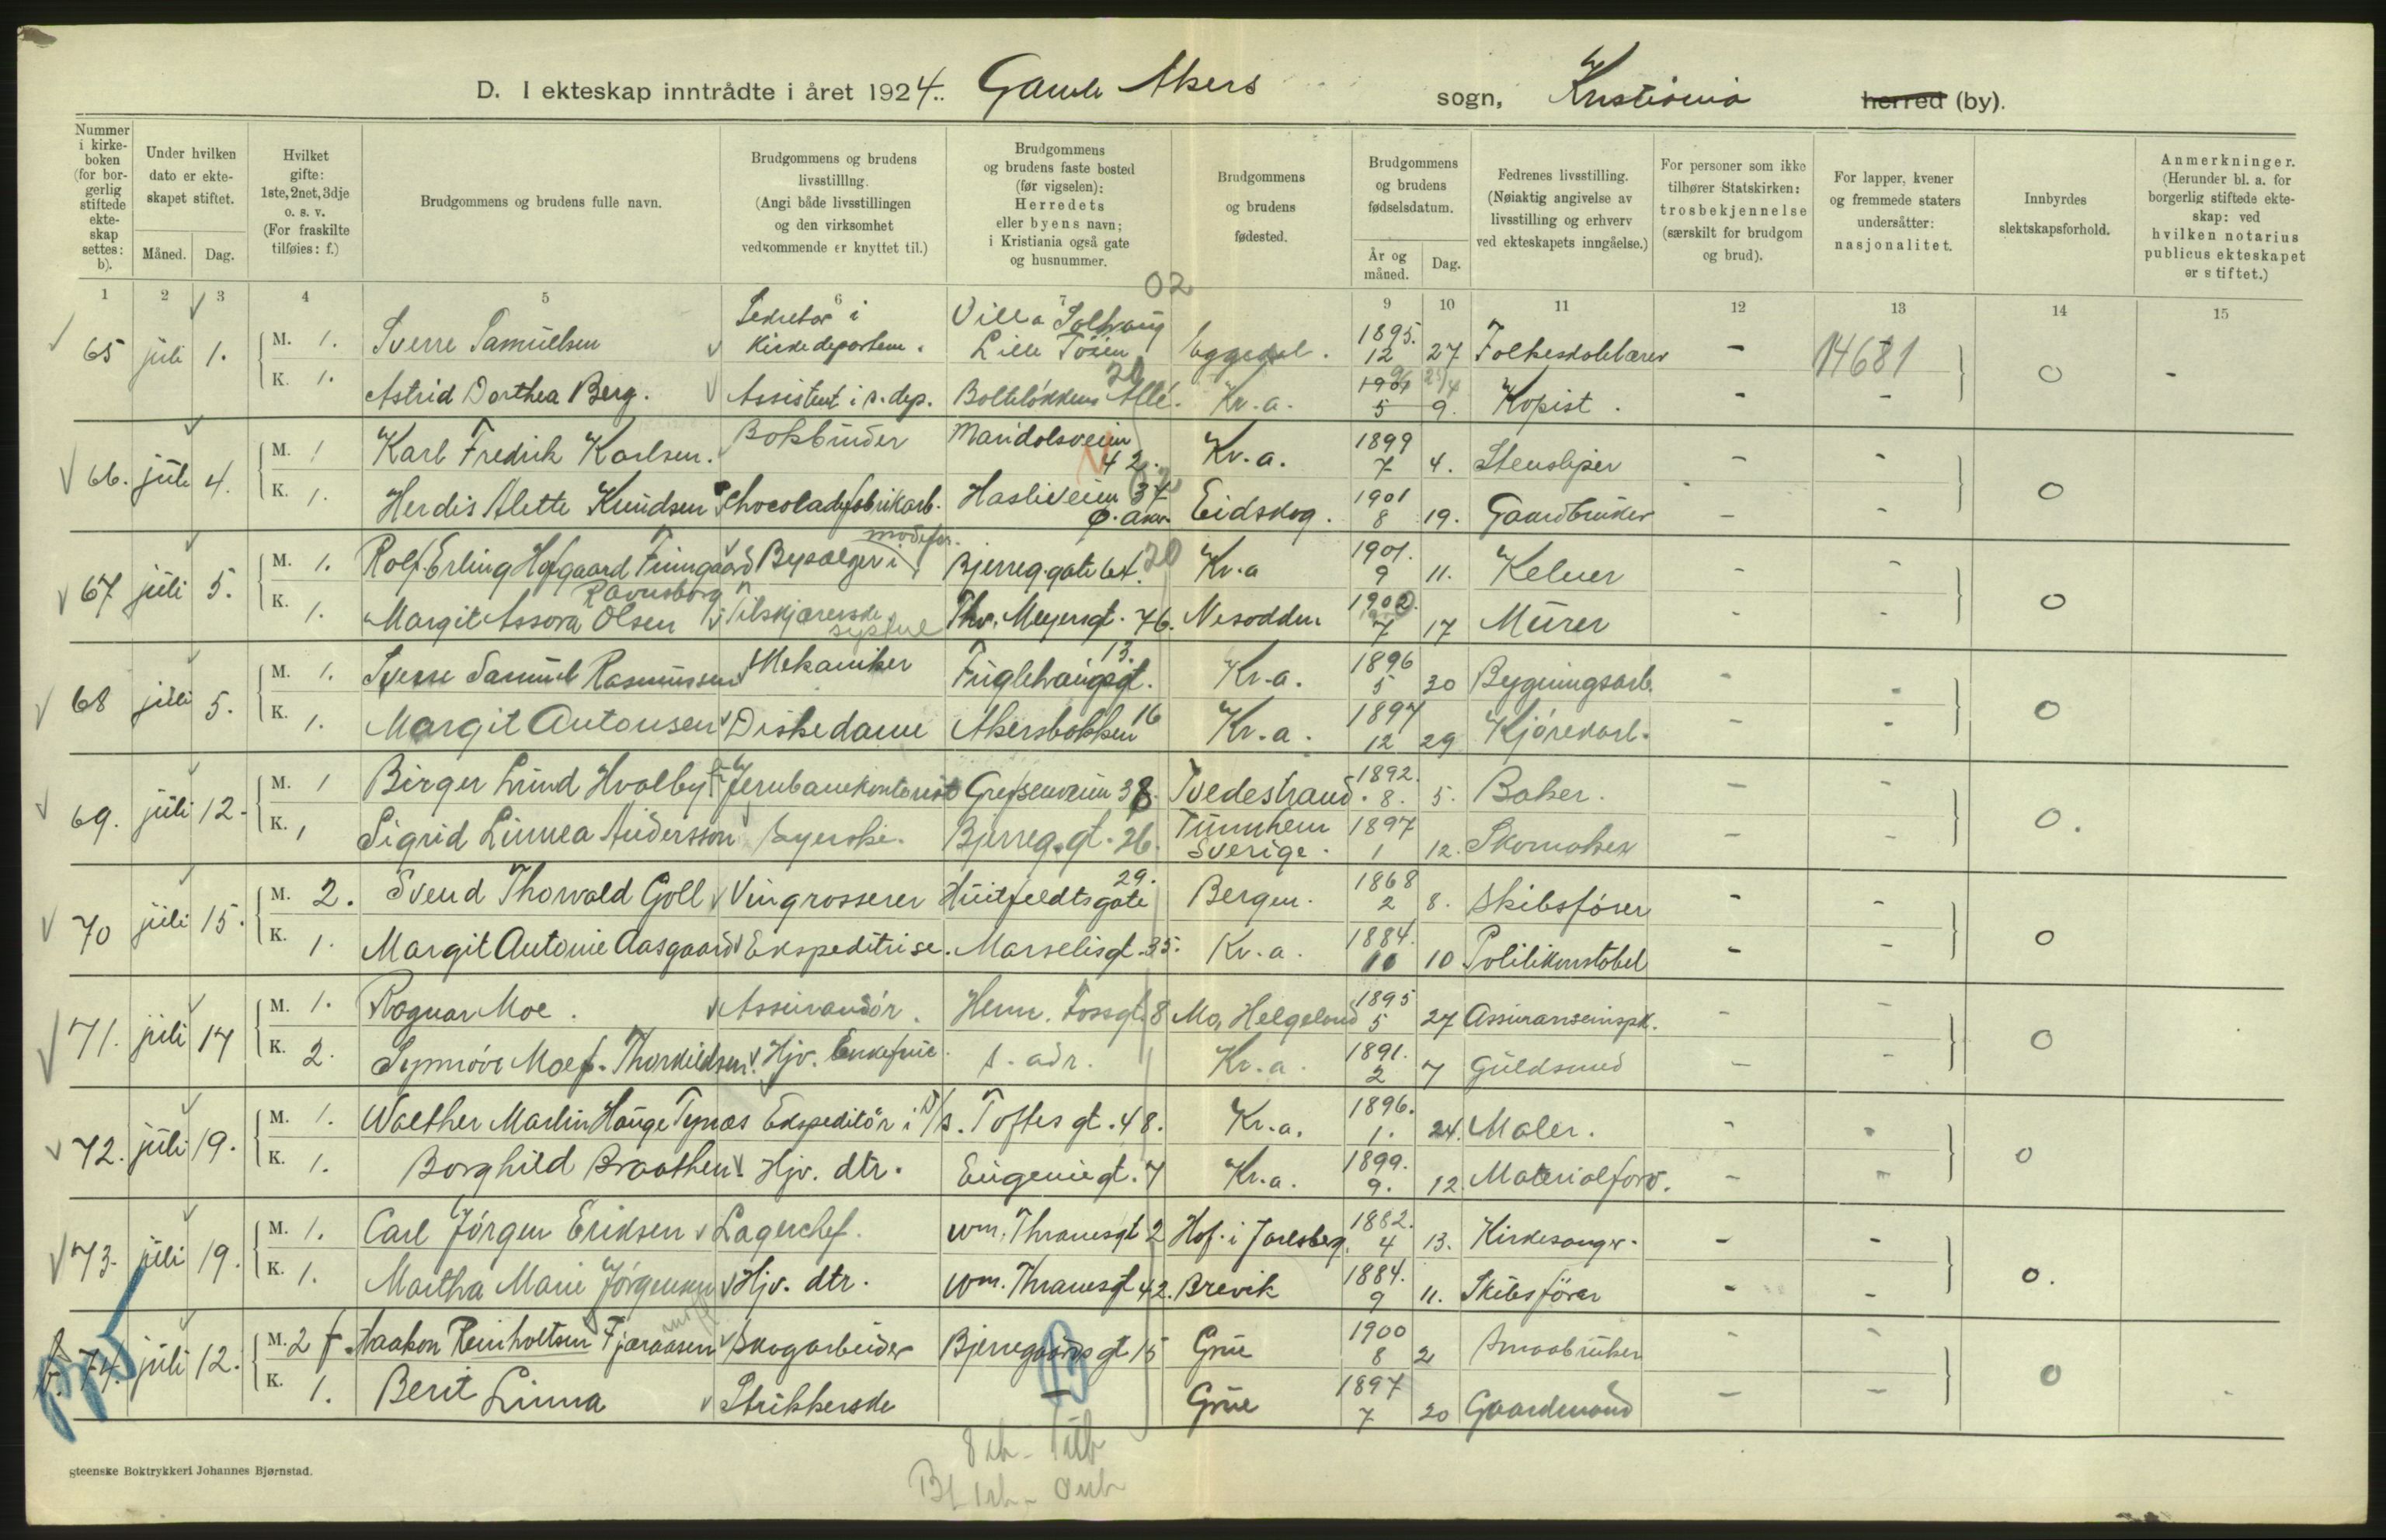 D. I ekteskap inntrådte i året 1924. Gamle Akers sogn, Kristiania herred (by).
Nummer i kirkeboken (for borgerlig stiftede ekteskap settes: b).
Under hvilken dato er ekteskapet stiftet.
Måned. Dag.
Hvilket gifte: 1ste, 2net, 3dje o. s. v. (For fraskilte tilføies: f.)
Brudgommens og brudens fulle navn.
Brudgommens og brudens livsstilllng. (Angi både livsstillingen og den virksomhet vedkommende er knyttet til.)
Brudgommens og brudens faste bosted (før vigselen): Herredets eller byens navn; i Kristiania også gate og husnummer.
Brudgommens og brudens fødested.
Brudgommens og brudens fødselsdatum.
År og måned. Dag.
Fedrenes livsstilling. (Nøiaktig angivelse av livsstilling og erhverv ved ekteskapets inngåelse.)
For personer som ikke tilhører Statskirken: trosbekjennelse (særskilt for brudgom og brud).
For lapper, kvener og fremmede staters undersåtter: nasjonalitet.
Innbyrdes slektskapsforhold.
Anmerkninger. (Herunder bl. a. for borgerlig stiftede ekteskap: ved hvilken notarius publicus ekteskapet er stiftet.)
1 2 3 4 5 6 7 9 10 11 12 13 14 15
02
65 juli 1. M. 1. Sverre Samuelsen Sekretær i Kirkedepartem. Villa Solhaug Lille Tøien Eggedal. 1895. 12 27 Folkeskolelærer - 14681 0 -
K. 1. Astrid Dorthea Berg. Assistent i s. dep. Bolteløkkens Allé. 20 Kr.a. 1901 5 9. Kopist. - -
66. juli 4. M. 1 Karl Fredrik Karlsen. Bokbinder Maridalsveien 42. Kr.a. 1899 7 4. Stensliper - - 0
K. 1. Herdis Alette Knudsen Chocoladefabrikarb. Hasleveien 37 Ø. Aker Eidskog. 1901 8 19. Gaardbruker - -
67 juli 5. M. 1. Rolf Erling Hofgaard Finngaard Bysælger i modefor. Bjerreg.gate 64. 20 Kr.a 1901. 9 11. Kelner - - 0
K. 1. Margit Assora Olsen Ravnsborg Tilskjærerske systue Thv. Meyersgt. 76. Nesodden 1902. 7 17 Murer - -
68 juli 5. M. 1. Sverre Samuel Rasmussen Mekaniker Fuglehaugsgt. 13. Kr.a. 1896 5 30 Bygningsarb. - - 0
K. 1. Margit Antonsen Diskedame Akersbakken 16 Kr.a. 1897 12 29 Kjørekarl. - -
69. juli 12. M. 1 Birger Lund Hvalby Jernbanekontorist Grefsenveien 38. Tvedestrand. 1892. 8. 5. Baker. - - 0.
K. 1 Sigrid Linnea Andersson Syerske. Bjerreg.gt. 26. Tunhem Sverige. 1897 1 12. Skomaker - -
70 juli 15. M. 2. Svend Thorvald Goll Vingrosserer Huitfeldtsgate 29. Bergen. 1868 2 8. Skibsfører - - 0
K. 1. Margit Antonie Aasgaard Ekspeditrise. Marselisgt. 35. Kr.a. 1884. 10 10. Politikonstabel - -
71. juli 17 M. 1. Ragnar Moe. Assurandør. Henr. Fossgt. 8 Mo, Helgeland 1895 5 27 Assuranseinspk. - - 0
K. 2. Synnøve Moe f. Thorkildsen. Hjv. Enkefrue. s. adr. Kr.a. 1891. 2 7 Guldsmed - -
72. juli 19. M. 1. Walther Martin Hauge Tynæs Ekspeditør i A/s. Toftes gt. 48. Kr.a. 1896. 1. 24. Maler. - - 0
K. 1. Borghild Braathen. Hjv. dtr. Eugeniegt. 7 Kr.a. 1899. 9. 12. Materialforv. - -
73. juli 19. M. 1. Carl Jørgen Eriksen Lagerchef. Wm. Thranesgt 2 Hof. i Jarlsberg. 1882. 4 13. Kirkesanger. - - 0.
K. 1. Martha Marie Jørgensen Hjv. dtr. Wm. Thranesgt 42. Brevik 1884. 9 11. Skibsfører - -
74. juli 12. M. 2 f. Haakon Reinholtsen Fjæraasen Skogarbeider Bjerregaardsgt 15 Grue 1900 8 2 Smaabruker - - 0
K. 1. Berit Linna Strikkerske - Grue 1897 7 20 Gaardmand - -
Steenske Boktrykkeri Johannes Bjørnstad.